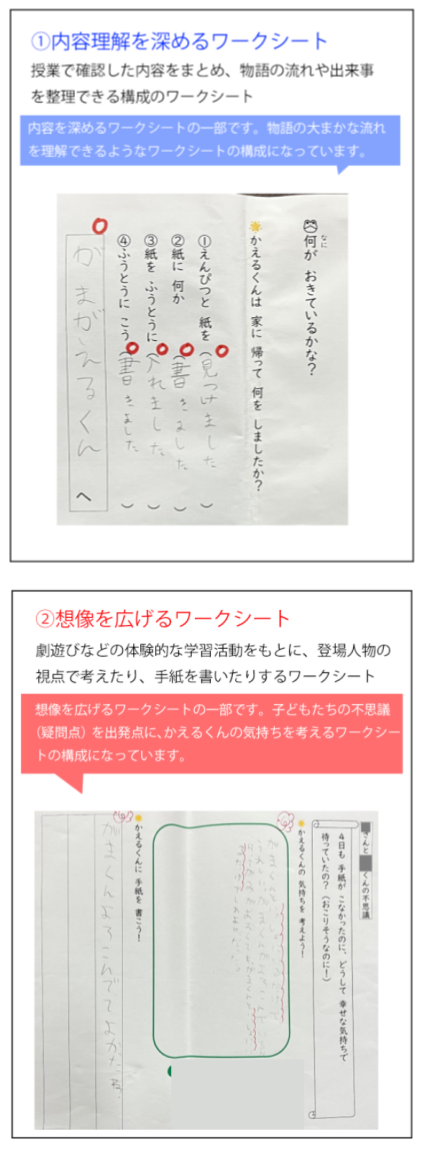 ①内容理解を深めるワークシート
授業で確認した内容をまとめ、物語の流れや出来事
を整理できる構成のワークシート
内容を深めるワークシートの一部です。物語の大まかな流れ
を理解できるようなワークシートの構成になっています。
何が おきているかな？
なに
かえるくんは 家に 帰って 何を しましたか？
①えんぴつと 紙を（見つけました）
②紙に 何か（書きました）
③紙を ふうとうに（入れました）
④ふうとうに こう（書きました）
がまがえるくん へ
②想像を広げるワークシート
劇遊びなどの体験的な学習活動をもとに、登場人物の
視点で考えたり、手紙を書いたりするワークシート
想像を広げるワークシートの一部です。子どもたちの不思議
（疑問点）を出発点に、かえるくんの気持ちを考えるワークシー
トの構成になっています。
さんと くんの不思議
4日も 手紙が こなかったのに、どうして 幸せな気持ちで
待っていたの？（おこりそうなのに！）
かえるくんの 気持ちを 考えよう！
かえるくんに 手紙を 書こう！
がまくんよろこんでてよかったね。